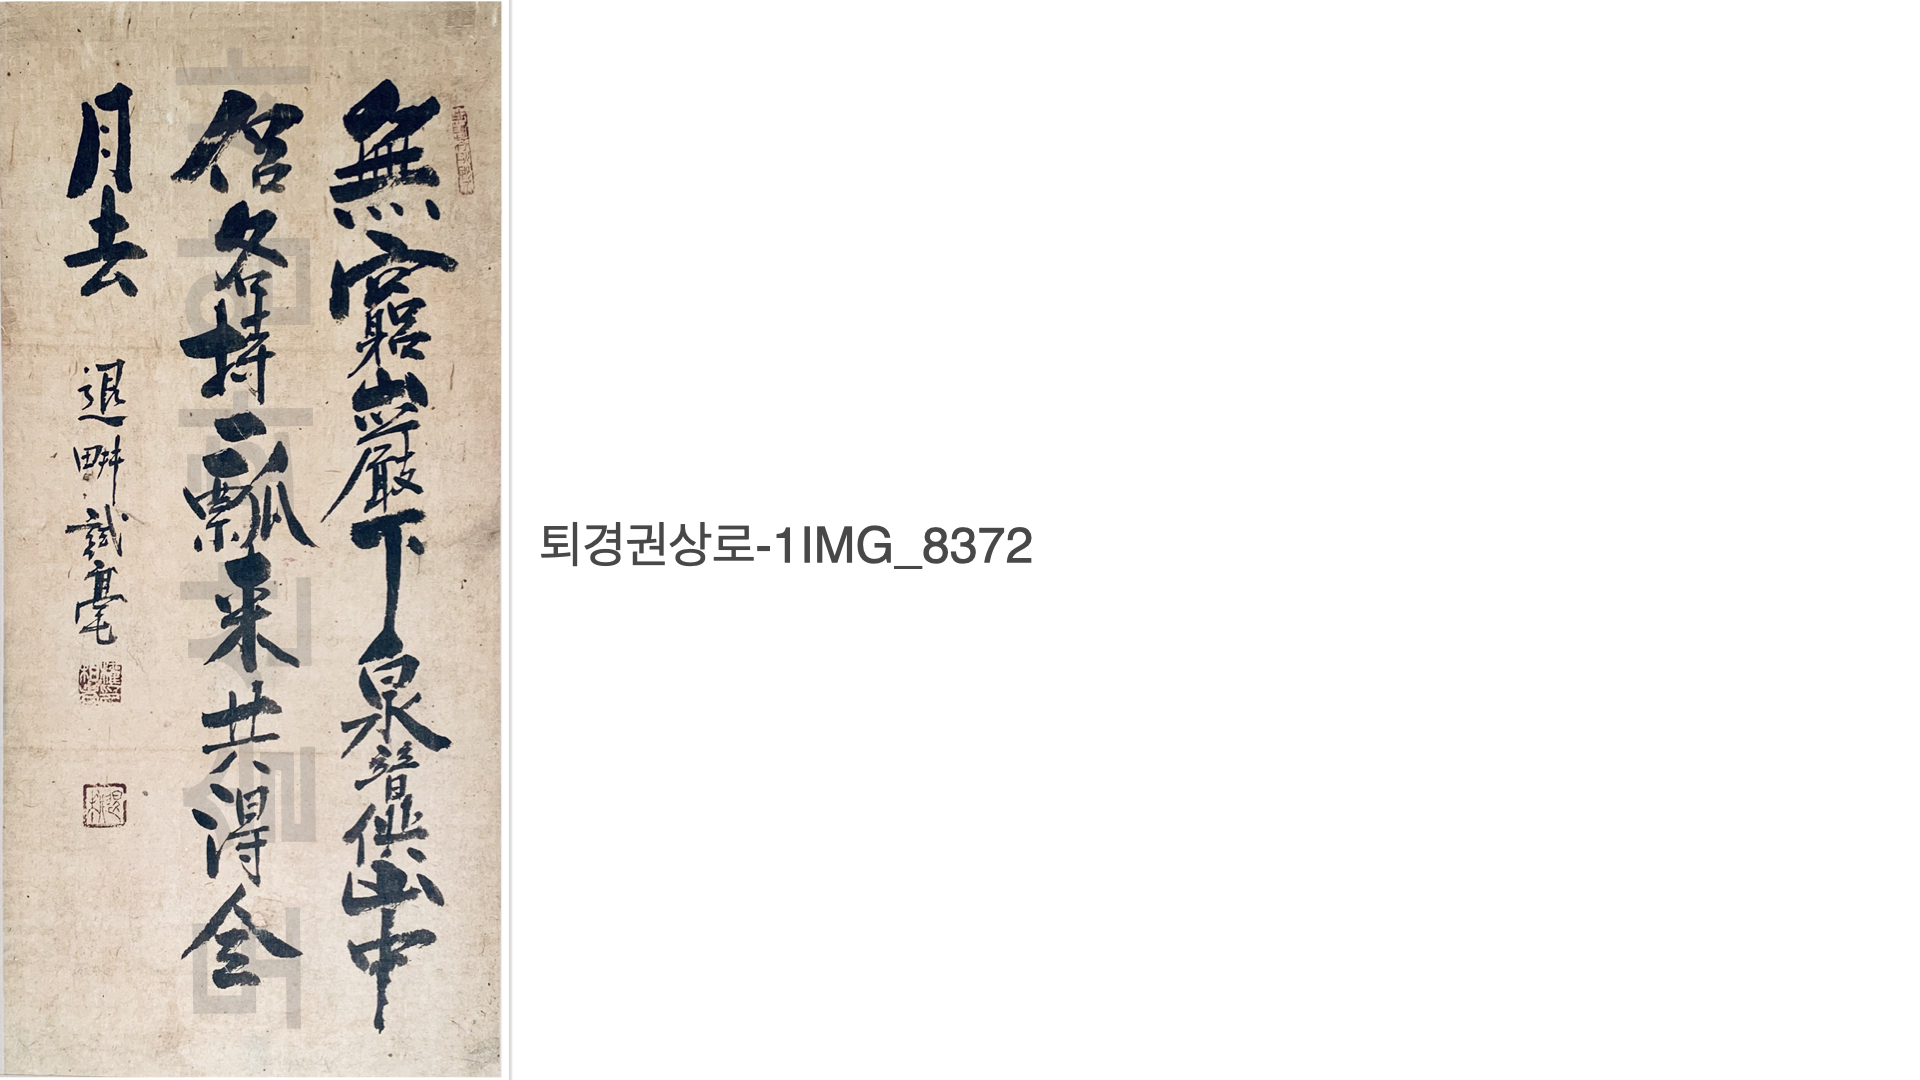 無竆巖下泉普供山中
侶各持一瓢来共得全
月去
退畊試毫
퇴경권상로-1IMG_8372